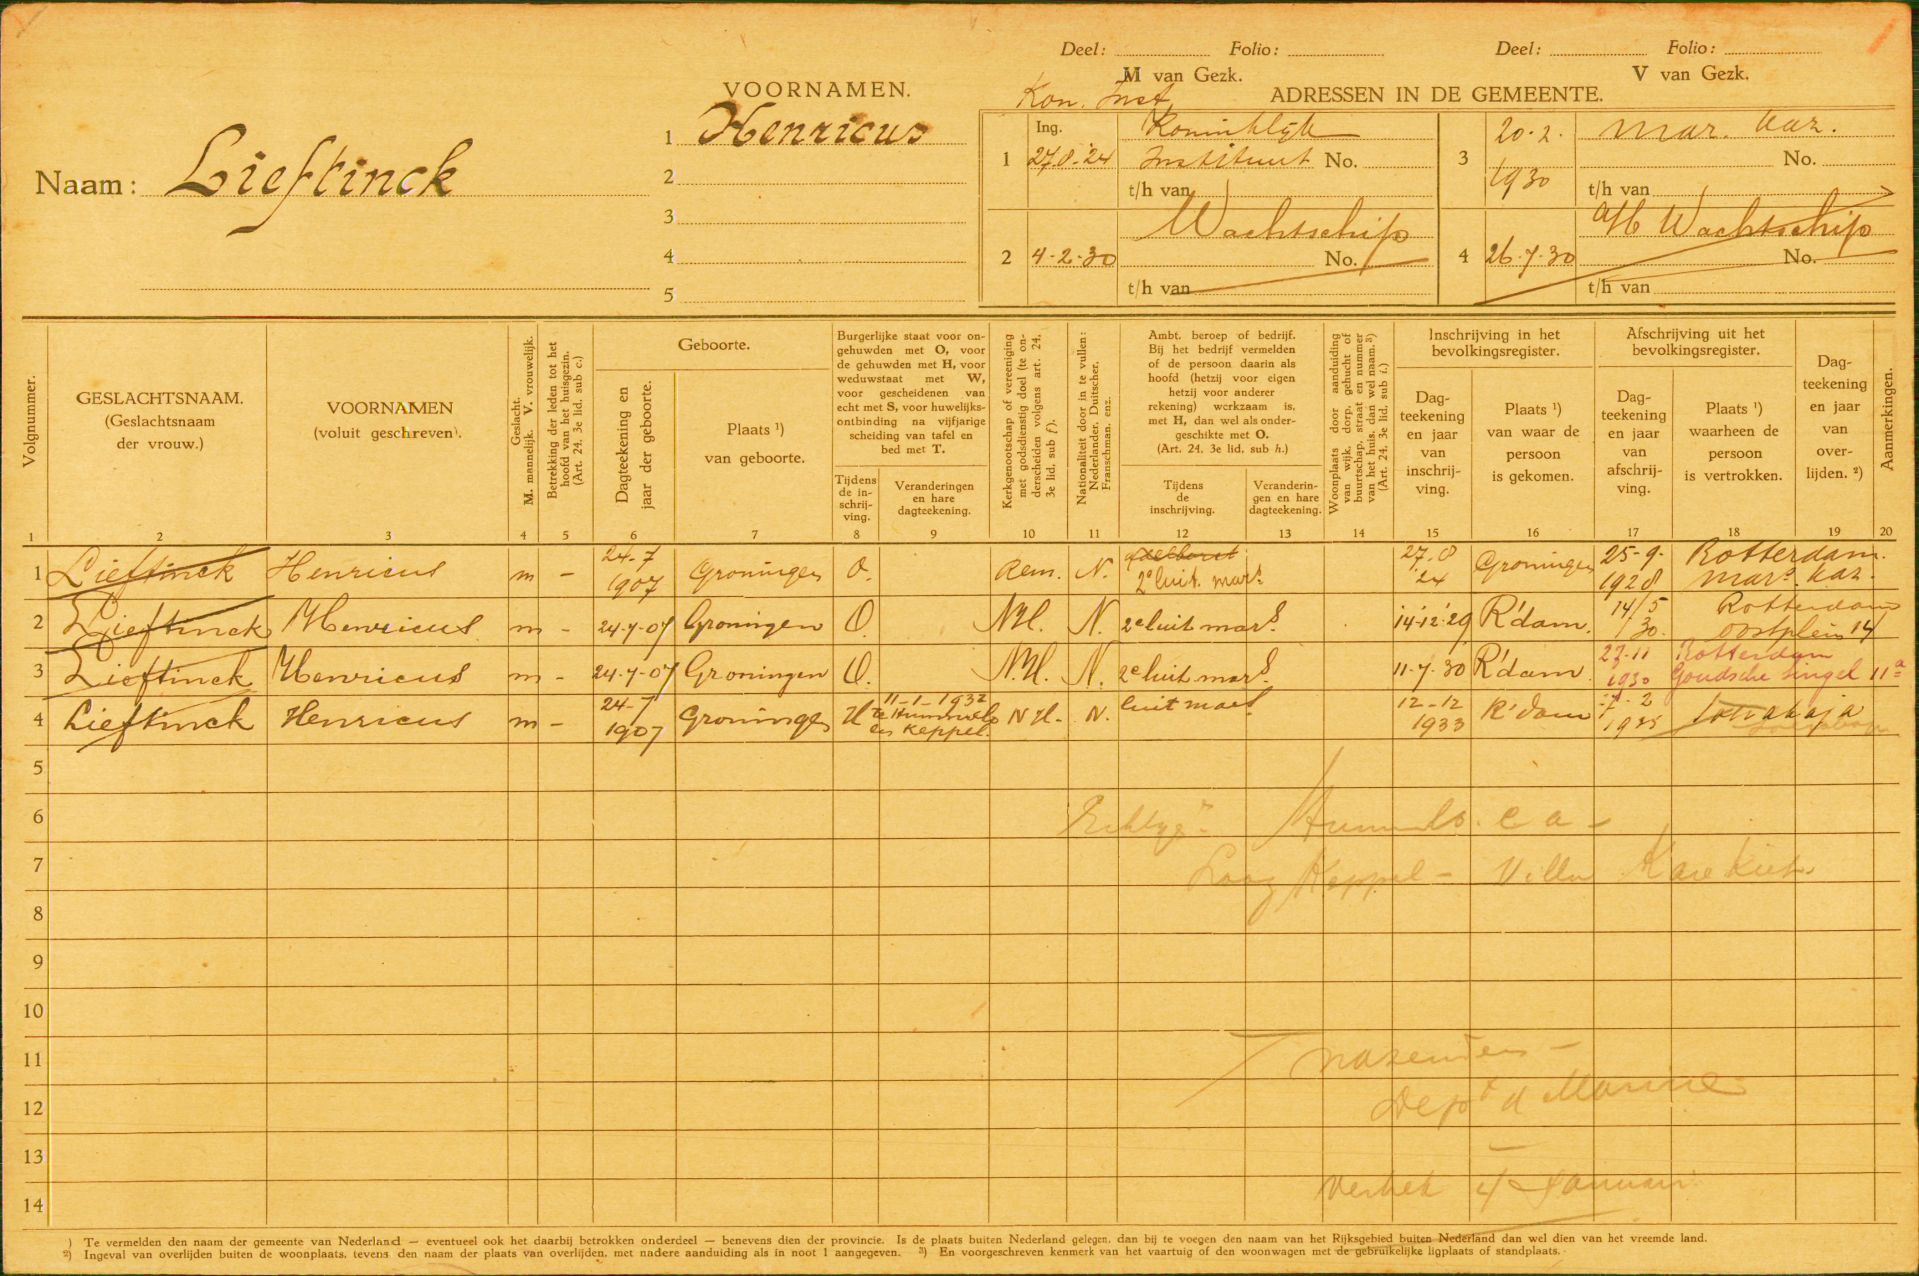 Deel: Folio: Deel: Folio:
M van Gezk. V van Gezk.
VOORNAMEN.
Kon. Inst.
ADRESSEN IN DE GEMEENTE.
Naam: Lieftinck
1 Henricus
2
3
4
5
1 Ing. 27.8.'24 Koninklijk
Instituut No.
t/h van
2 4-2-30 Wachtschip
No.
t/h van
3 20-2-1930 Mar. Kaz.
No.
t/h van
4 26-7-30 a/b Wachtschip
No.
t/h van
Volgnummer.
GESLACHTSNAAM.
(Geslachtsnaam
der vrouw.)
VOORNAMEN
(voluit geschreven).
Geslacht.
M. mannelijk. V. vrouwelijk.
Betrekking der leden tot het
hoofd van het huisgezin.
(Art. 24. 3e lid. sub c.)
Geboorte.
Dagteekening en
jaar der geboorte.
Plaats ¹)
van geboorte.
Burgerlijke staat voor on-
gehuwden met O, voor
de gehuwden met H, voor
weduwstaat met W,
voor gescheidenen van
echt met S, voor huwelijks-
ontbinding na vijfjarige
scheiding van tafel en
bed met T.
Tijdens
de in-
schrij-
ving.
Veranderingen
en hare
dagteekening.
Kerkgenootschap of vereeniging
met godsdienstig doel (te on-
derscheiden volgens art. 24,
3e lid. sub f).
Nationaliteit door in te vullen:
Nederlander, Duitscher,
Franschman, enz.
Ambt, beroep of bedrijf.
Bij het bedrijf vermelden
of de persoon daarin als
hoofd (hetzij voor eigen
hetzij voor anderer
rekening) werkzaam is,
met H, dan wel als onder-
geschikte met O.
(Art. 24. 3e lid. sub h.)
Tijdens
de
inschrijving.
Veranderin-
gen en hare
dagteekening.
Woonplaats door aanduiding
van wijk, dorp, gehucht of
buurtschap, straat en nummer
van het huis, dan wel naam. ³)
(Art. 24. 3e lid. sub i.)
Inschrijving in het
bevolkingsregister.
Dag-
teekening
en jaar
van
inschrij-
ving.
Plaats ¹)
van waar de
persoon
is gekomen.
Afschrijving uit het
bevolkingsregister.
Dag-
teekening
en jaar
van
afschrij-
ving.
Plaats ¹)
waarheen de
persoon
is vertrokken.
Dag-
teekening
en jaar
van
over-
lijden. ²)
Aanmerkingen.
1 2 3 4 5 6 7 8 9 10 11 12 13 14 15 16 17 18 19 20
1 Lieftinck Henricus m – 24-7 1907 Groningen O. Rem. N. adelborst 2e luit. mars. 27.8 24 Groningen 25-9-1928 Rotterdam. Mars. Kaz.
2 Lieftinck Henricus m – 24-7-07 Groningen O. N.H. N. 2e luit mars. 14-12-29 R'dam. 14/5 /30. Rotterdam Oostplein 14
3 Lieftinck Henricus m – 24-7-07 Groningen O. N.H. N. 2e luit mars. 11-7-30 R'dam. 27-11 1930 Rotterdam Goudsche singel 11a
4 Lieftinck Henricus m – 24-7 1907 Groningen H 11-1-1932 te Hummelo en Keppel. N.H. N. luit mars 12-12 1933 R'dam 2 1935 Soerabaja
5
6 Hummelo. c a –
7 Laag Keppel – Villa Karekiet.
8
9
10
11 nazenden –
12 Dept d Marine
13
14 vertrek 4 Januari
¹) Te vermelden den naam der gemeente van Nederland — eventueel ook het daarbij betrokken onderdeel — benevens dien der provincie. Is de plaats buiten Nederland gelegen, dan bij te voegen den naam van het Rijksgebied buiten Nederland dan wel dien van het vreemde land.
²) Ingeval van overlijden buiten de woonplaats, tevens den naam der plaats van overlijden, met nadere aanduiding als in noot 1 aangegeven. ³) En voorgeschreven kenmerk van het vaartuig of den woonwagen met de gebruikelijke ligplaats of standplaats.